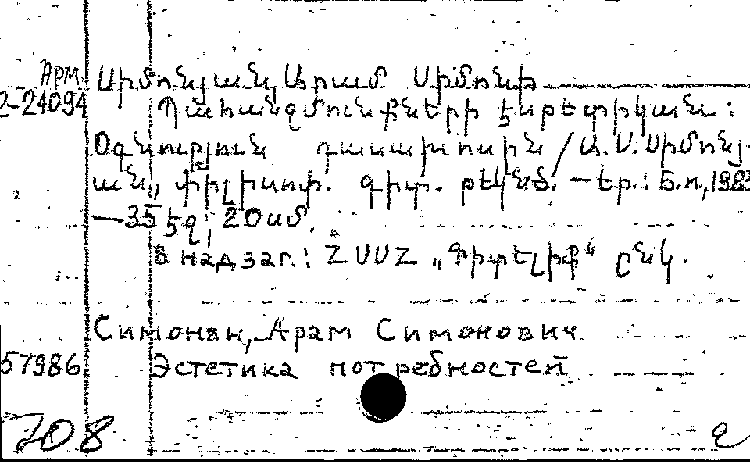 Арм
2-24094
Սիմոնյան, Արամ Սիմոնի
Պահանջմունքների էսթետիկան:
Օգնություն դասախոսին /Ա.Ս.Սիմոնյ-
ան, փիլիսոփ. գիտ. թեկնծ. —Եր.: Б.п, 198
—35 էջ; 20սմ.
В надзаг.: ՀՍՍՀ „Գիտելիք“ ընկ.
Симонян, Арам Симонович
57986 Эстетика потребностей
708